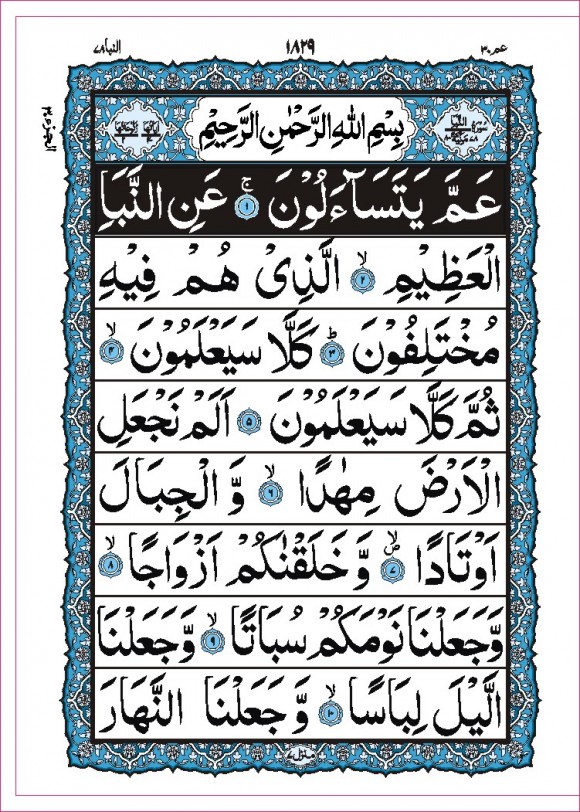 عم ٣٠ ١٨٢٩ النبا ٧٨
الجزء ٣٠
بِسْمِ اللّٰهِ الرَّحْمٰنِ الرَّحِيْمِ
عَمَّ يَتَسَآءَلُوْنَ ۚ ١ عَنِ النَّبَاِ
الْعَظِيْمِ ۙ ٢ الَّذِىْ هُمْ فِيْهِ
مُخْتَلِفُوْنَ ؕ ٣ كَلَّا سَيَعْلَمُوْنَ ۙ ٤
ثُمَّ كَلَّا سَيَعْلَمُوْنَ ٥ اَلَمْ نَجْعَلِ
الْاَرْضَ مِهٰدًا ۙ ٦ وَّ الْجِبَالَ
اَوْتَادًا ۪ۙ ٧ وَّ خَلَقْنٰكُمْ اَزْوَاجًا ۙ ٨
وَّجَعَلْنَا نَوْمَكُمْ سُبَاتًا ۙ ٩ وَّجَعَلْنَا
الَّيْلَ لِبَاسًا ۙ ١٠ وَّ جَعَلْنَا النَّهَارَ
منزل ٧